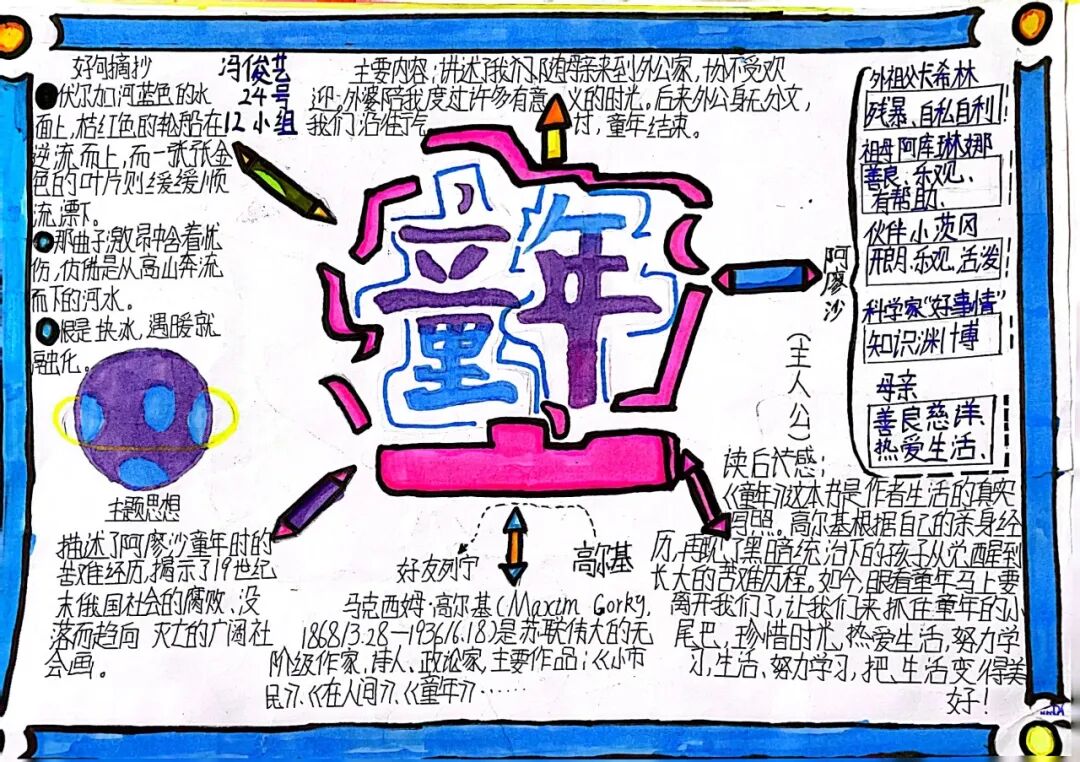 好句摘抄
伏尔加河蓝色的水
面上,桔红色的轮船在
逆流而上,而一张张金
色的叶片则缓缓顺
流漂下。
那曲子激昂中含着忧
伤,仿佛是从高山奔流
而下的河水。
恨是块冰,遇暖就
融化。
冯俊艺
24号
12小组
主要内容:讲述了我们随母亲来到外公家,协不受欢
迎,外婆陪我度过许多有意义的时光。后来外公身无分文,
我们沿街乞讨,童年结束。
童年
外祖父卡希林
残暴、自私自利
祖母阿库琳娜
善良、乐观、
有帮助、
伙伴小茨冈
开朗、乐观、活泼
科学家“好事情”
知识渊博
母亲
善良慈祥、
热爱生活、
阿廖沙
(主人公)
主题思想
描述了阿廖沙童年时的
苦难经历,揭示了19世纪
末俄国社会的腐败、没
落而趋向灭亡的广阔社
会画。
好友列宁
高尔基
马克西姆·高尔基(Maxim Gorky,
1868/3.28—1936/6.18)是苏联伟大的无
阶级作家、诗人、政论家,主要作品:《小市
民》、《在人间》、《童年》……
读后感:
《童年》这本书是作者生活的真实
写照。高尔基根据自己的亲身经
历,再现了黑暗统治下的孩子从觉醒到
长大的苦难历程。如今,眼看童年马上要
离开我们了,让我们来抓住童年的小
尾巴、珍惜时光,热爱生活,努力学
习,生活、努力学习,把、生活变得美
好!